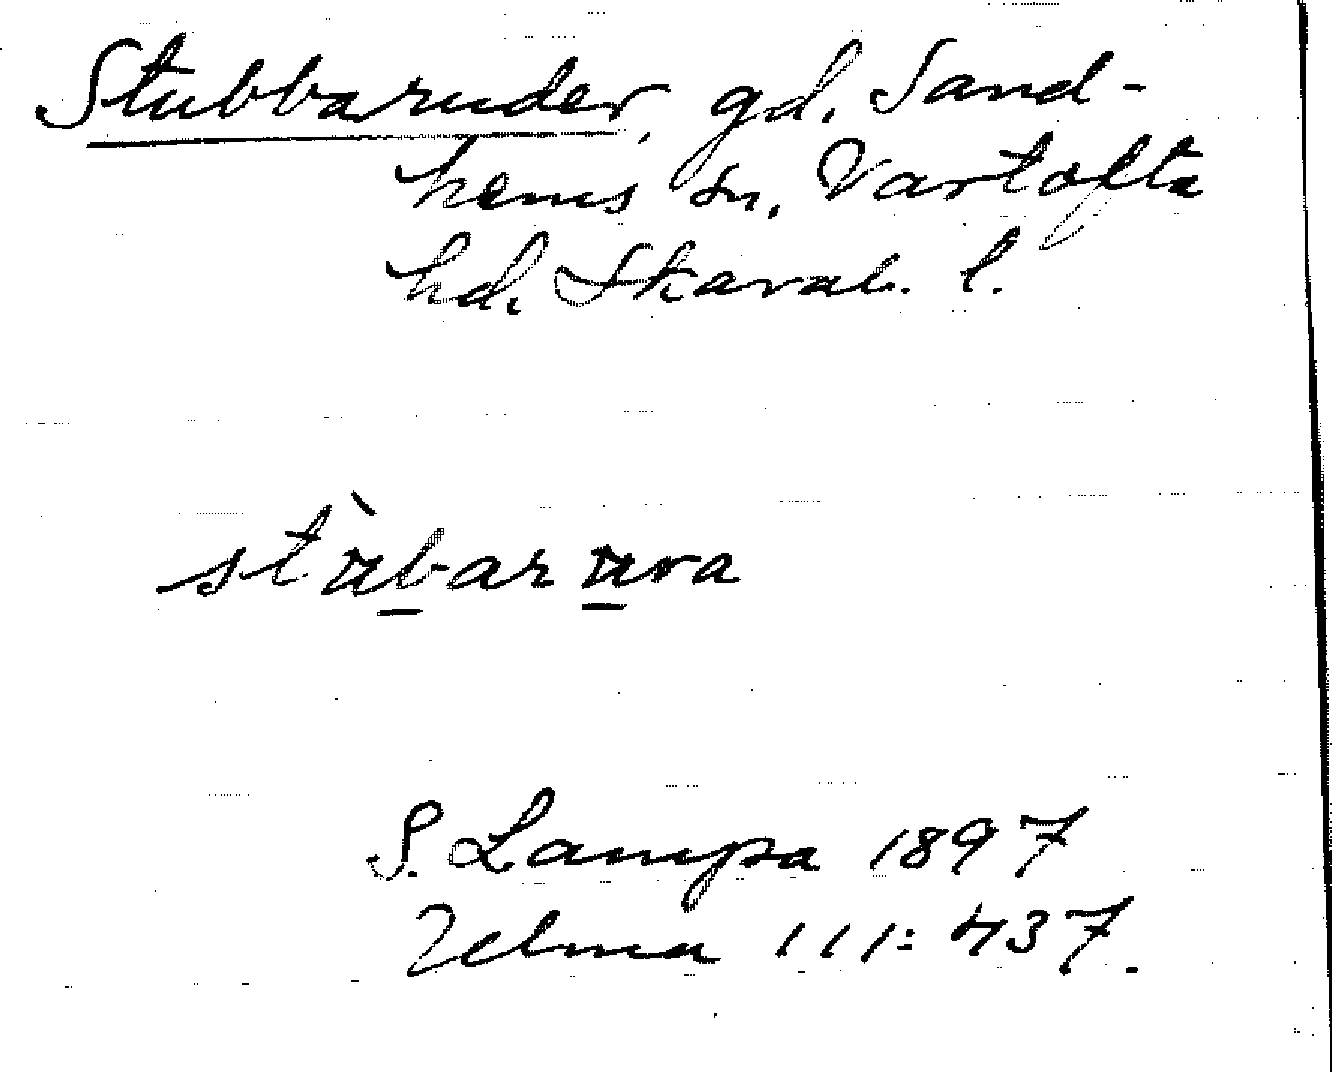 Stubbaruder, gd. Sand-
hems sn. Vartofta
hd. Skarab. l.
stùbarura
S. Lampa 1897
Uelma 111: 437.